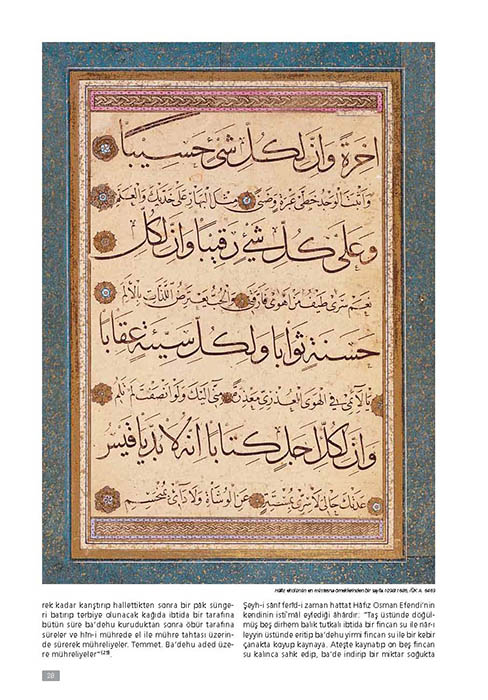 اخرة وان لكل شئ حسيبا
وأثبت الوجد خطي عبرة وضنى مثل البهار على خديك والعنم
وعلى كل شئ رقيبا وان لكل
نعم سرى طيف من اهوى فارقني والحب يعترض اللذات بالالم
حسنة ثوابا ولكل سيئة عقابا
يا لائمي في الهوى العذري معذرة مني اليك ولو انصفت لم تلم
وان لكل اجل كتابا انه لا بد يا قيس
عدتك حالي لا سري بمستتر عن الوشاة ولا دائي بمنحسم
Hâfız ekolünün en müstesna örneklerinden bir sayfa
rek kadar karıştırıp hallettikten sonra bir pâk sünge-
ri batırıp terbiye olunacak kağıda ibtida bir tarafına
bütün süre ba'dehu kuruduktan sonra öbür tarafına
süreler ve hîn-i mührede el ile mühre tahtası üzerin-
de sürerek mühreliyeler. Temmet. Ba'dehu aded üze-
re mühreliyeler"
Şeyh-i sânî ferîd-i zaman hattat Hâfız Osman Efendi'nin
kendinin isti'mâl eylediği âhârdır: "Taş üstünde doğül-
müş beş dirhem balık tutkalı ibtida bir fincan su ile nâr-ı
leyyin üstünde eritip ba'dehu yirmi fincan su ile bir kebir
çanakta koyup kaynaya. Ateşte kaynatıp on beş fincan
su kalınca sahk edip, ba'de indirip bir miktar soğukta
28